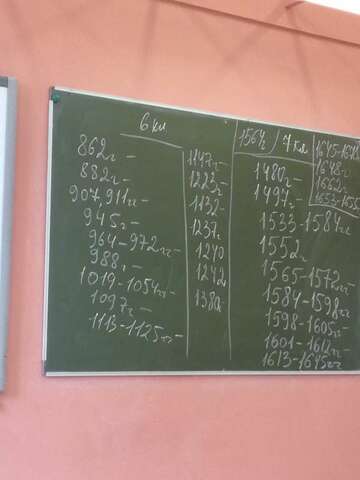 6 кл
862г -
882г -
907,911гг -
945г -
964-972гг -
988г -
1019-1054гг -
1097г -
1113-1125гг -
1147г -
1223г -
1132 -
1237г
1240
1242
1380г
1564г) 7 кл
1480г -
1497г -
1533-1584гг
1552г
1565-1572гг
1584-1598гг
1598-1605гг
1613-1645гг
1648г
1662г